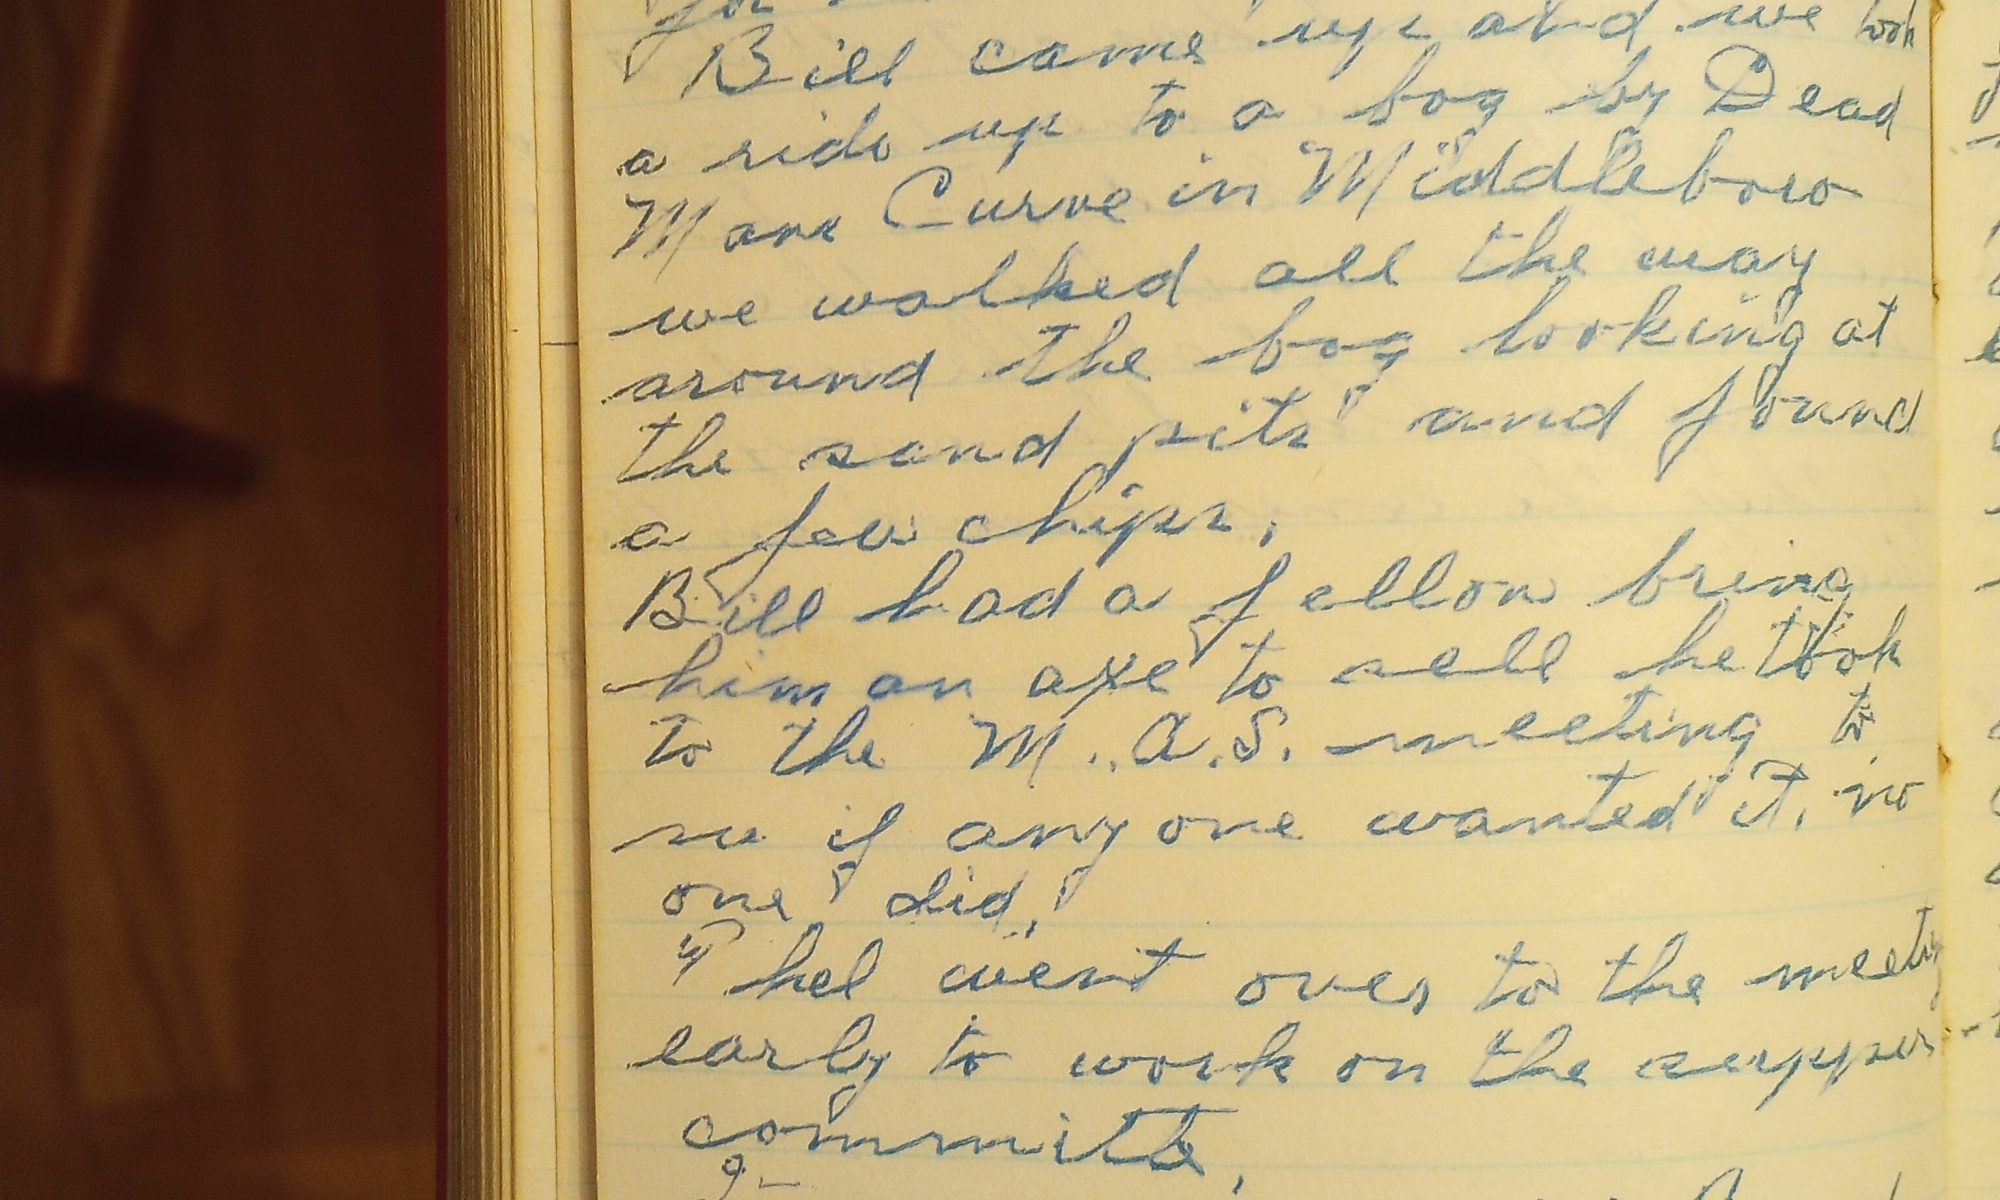 for
Bill came up and we took
a ride up to a bog by Dead
Mans Curve in Middleboro
we walked all the way
around the bog looking at
the sand pits and found
a few chips.
Bill had a fellow bring
him an axe to sell he took
to the M.A.S. meeting to
se if any one wanted it, no
one did.
Thel went over to the meeting
early to work on the supper
committe.